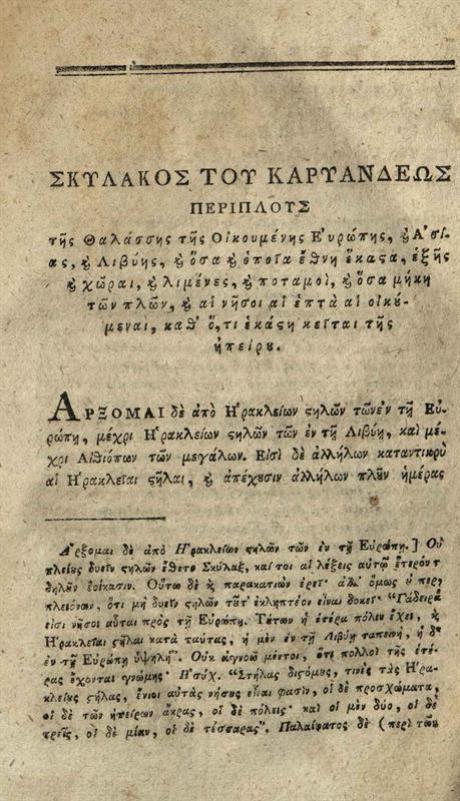 ΣΚΥΛΑΚΟΣ ΤΟΥ ΚΑΡΥΑΝΔΕΩΣ
ΠΕΡΙΠΛΟΥΣ
τῆς Θαλάσσης τῆς Οἰκουμένης Εὐρώπης, ϗ Ἀσί-
ας, ϗ Λιβύης, ϗ ὅσα ϗ ὁποῖα ἔθνη ἕκαϛα, ἑξῆς
ϗ χῶραι, ϗ λιμένες, ϗ ποταμοὶ, ϗ ὅσα μήκη
τῶν πλῶν, ϗ αἱ νῆσοι αἱ ἑπτὰ αἱ οἰκȣ́-
μεναι, καθ' ὅ,τι ἑκάϛη κεῖται τῆς
ἠπείρȣ.
ΑΡΞΟΜΑΙ δὲ ἀπὸ Ἡρακλείων ϛηλῶν τῶν ἐν τῇ Εὐ-
ρώπῃ, μέχρι Ἡρακλείων ϛηλῶν τῶν ἐν τῇ Λιβύῃ, καὶ μέ-
χρι Αἰθιόπων τῶν μεγάλων. Εἰσὶ δὲ ἀλλήλων καταντικρὺ
αἱ Ἡρακλεῖαι ϛῆλαι, ϗ ἀπέχȣσιν ἀλλήλων πλῦν ἡμέρας
Ἄρξομαι δὲ ἀπὸ Ἡρακλείων ϛηλῶν τῶν ἐν τῇ Εὐρώπῃ.] Οὐ
πλείȣς δυεῖν ϛηλῶν ἔθετο Σκύλαξ, καί τοι αἱ λέξεις αὐτῷ ἕτερόν τ
δηλῦν ἐοίκασιν. Οὕτω δὲ ϗ παρακατιὼν ἐρεῖ· ἀλλ' ὅμως ȣ̓ περὶ
πλειόνων, ὅτι μὴ δυεῖν ϛηλῶν τῦτ' ἐκληπτέον εἶναι δοκεῖ· "Γάδειρά
εἰσι νῆσοι αὗται πρὸς τῇ Εὐρώπῃ. Τȣ́των ἡ ἑτέρα πόλιν ἔχει, ϗ
Ἡρακλεῖαι ϛῆλαι κατὰ ταύτας, ἡ μὲν ἐν τῇ Λιβύῃ ταπεινὴ, ἡ δ'
ἐν τῇ Εὐρώπῃ ὑψηλή". Οὐκ ἀγνοῶ μέντοι, ὅτι πολλοὶ τῆς ἑτέ-
ρας ἔχονται γνώμης· Ἡσύχ. "Στήλας διϛόμȣς, τινὲς τὰς Ἡρα-
κλείȣς ϛήλας, ἔνιοι αὐτὰς νήσȣς εἶναι φασὶν, οἱ δὲ προσχώματα,
οἱ δὲ τῶν ἠπείρων ἄκρας, οἱ δὲ πόλεις· καὶ οἱ μὲν δύο, οἱ δὲ
τρεῖς, οἱ δὲ μίαν, οἱ δὲ τέσσαρας". Παλαίφατος δὲ (περὶ τῶν